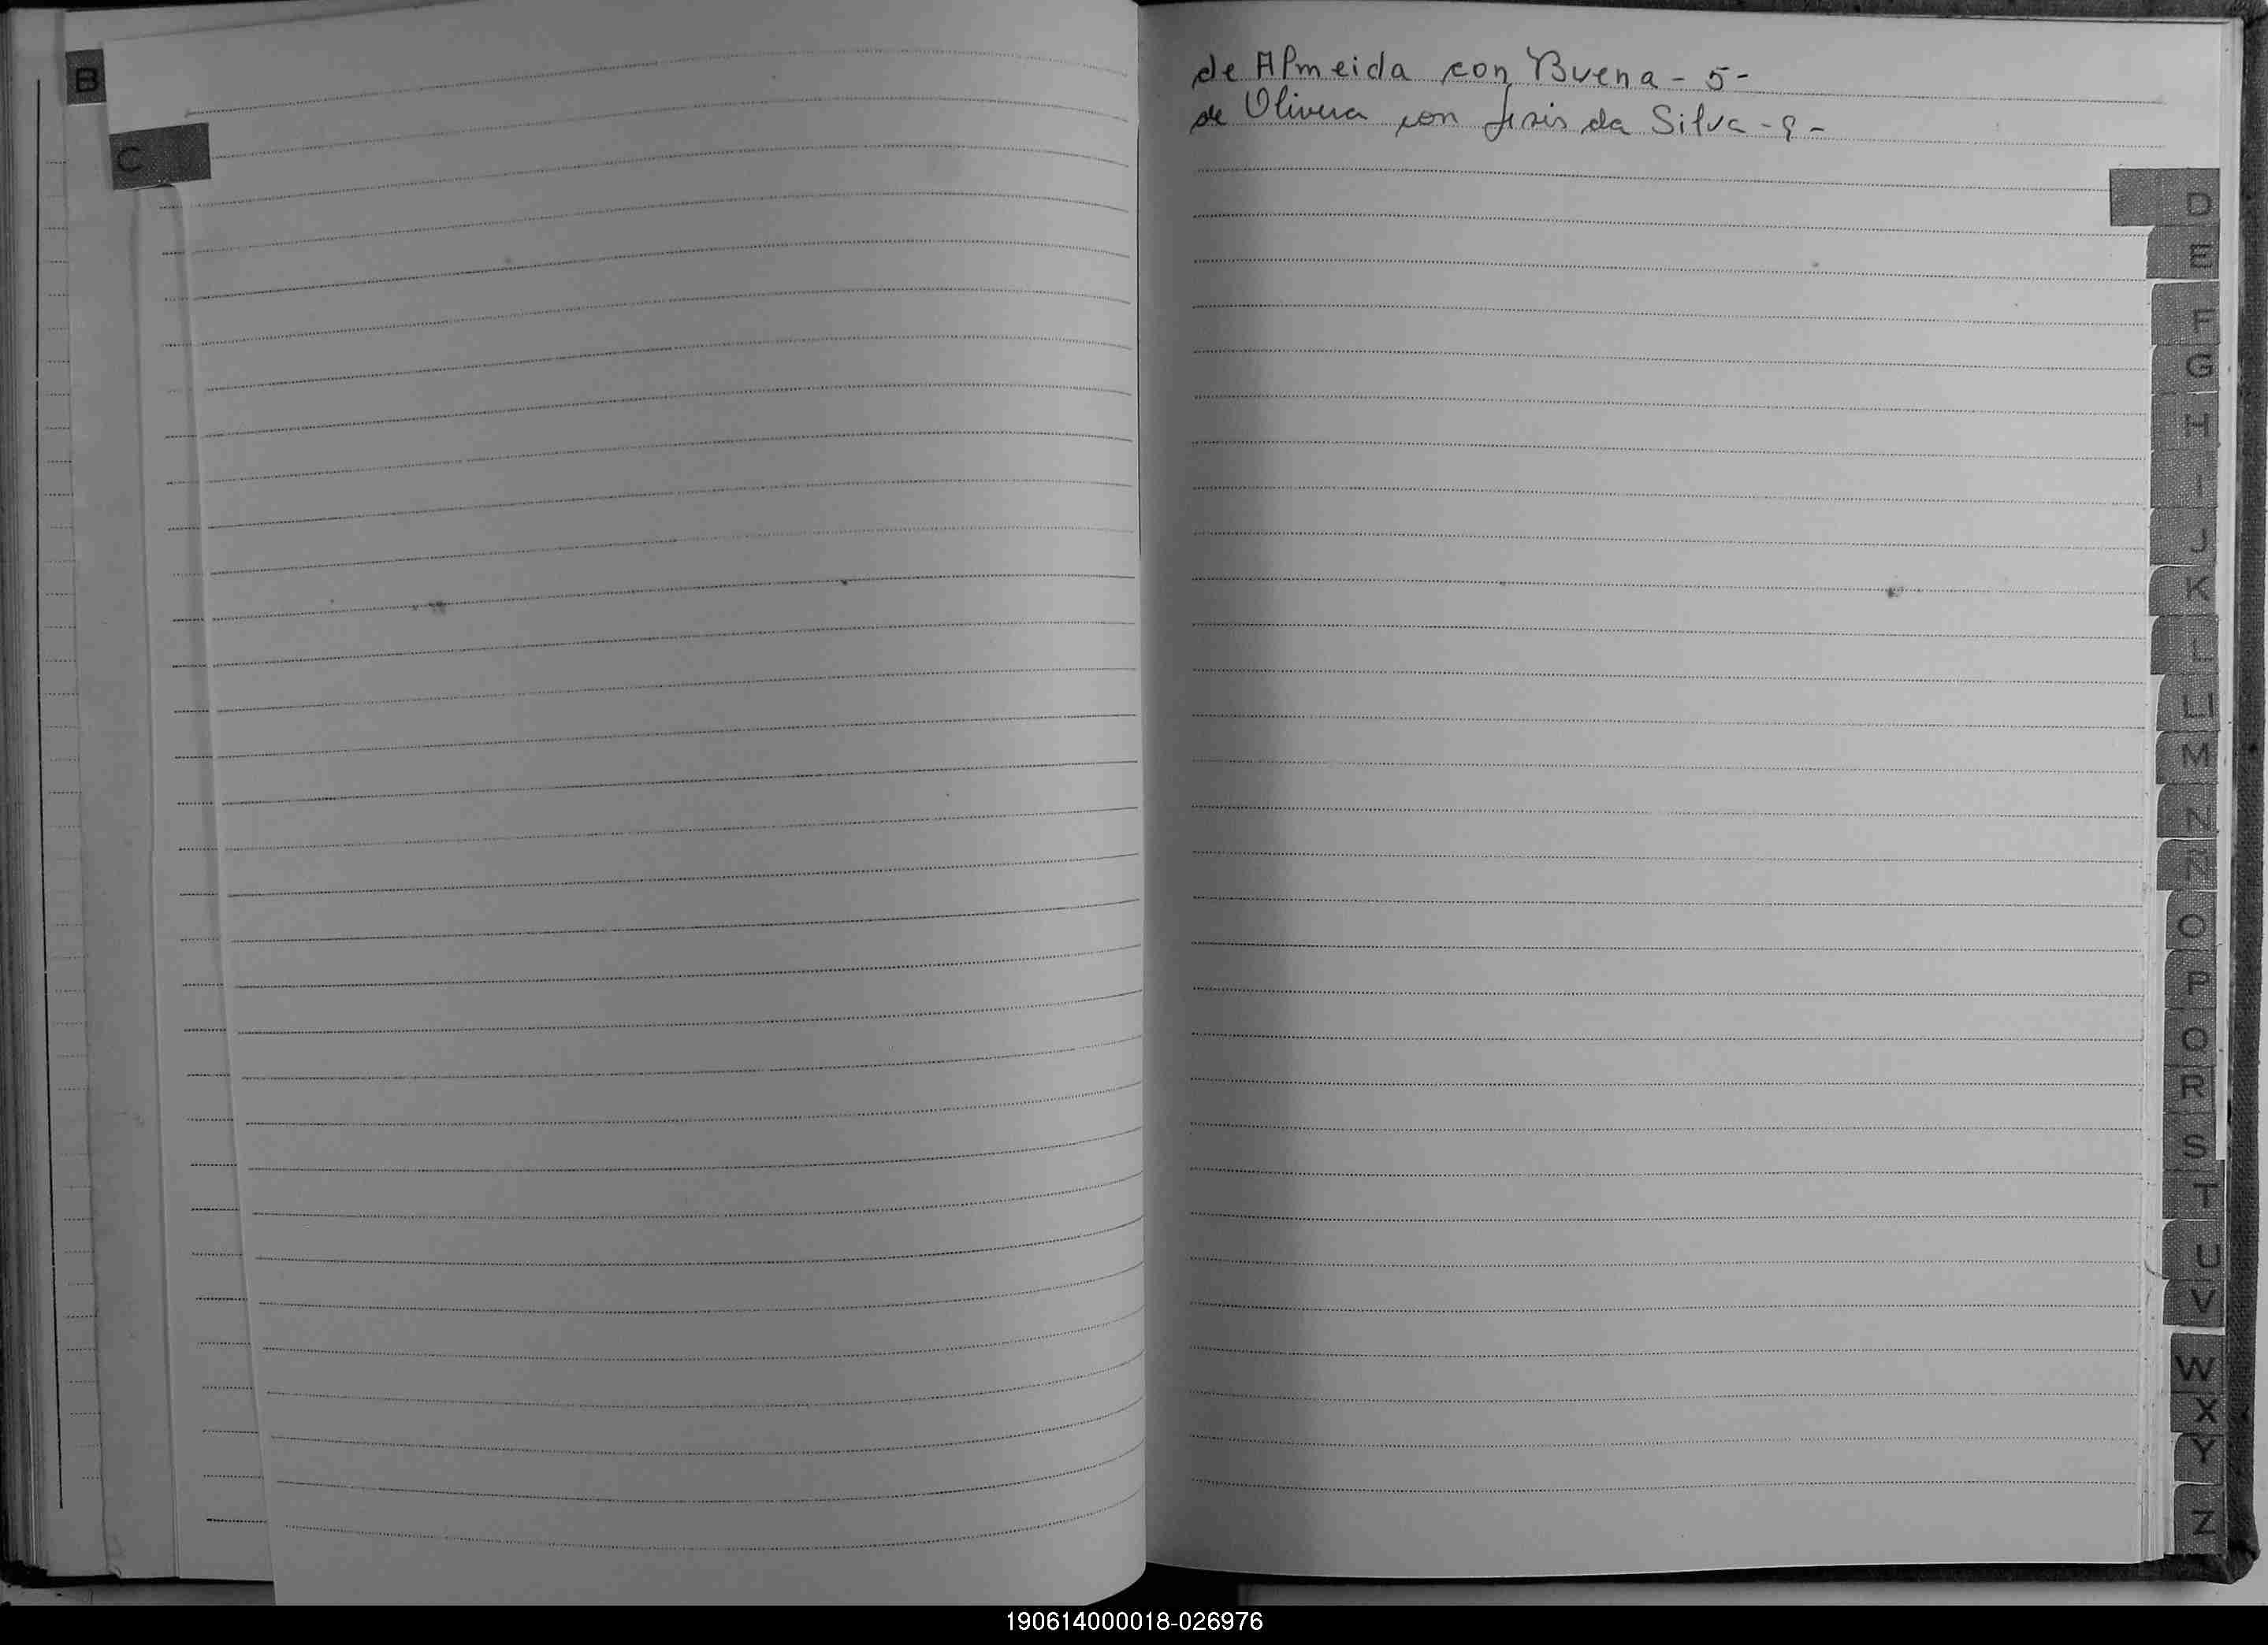 B
C
de Almeida con Buena - 5 -
de Olivera con Jesis da Silva - 9 -
D
E
F
G
H
I
J
K
L
Ll
M
N
Ñ
O
P
Q
R
S
T
U
V
W
X
Y
Z
190614000018-026976